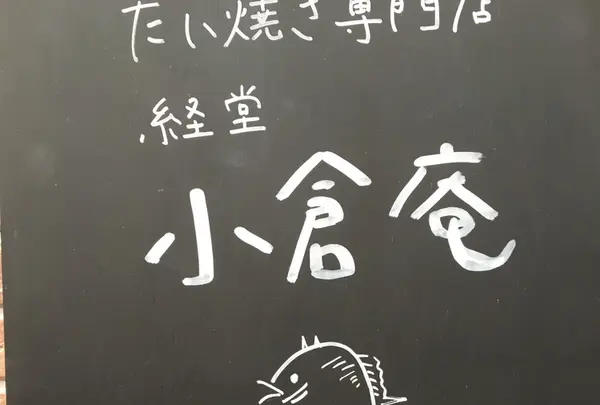 たい焼き専門店
経堂
小倉庵